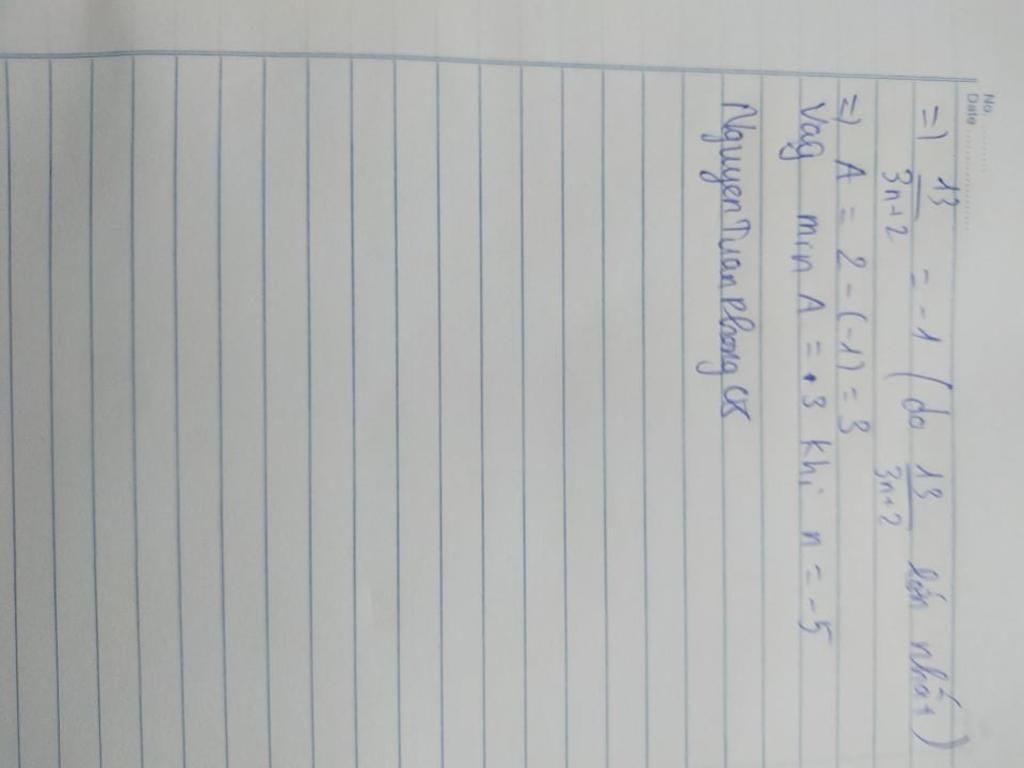 No. ..........
Date ....................
=) 13/3n+2 = -1 (do 13/3n+2 lớn nhất)
=) A = 2 - (-1) = 3
Vag min A = 3 khi n = -5
Nguyen Tuan Phong CK